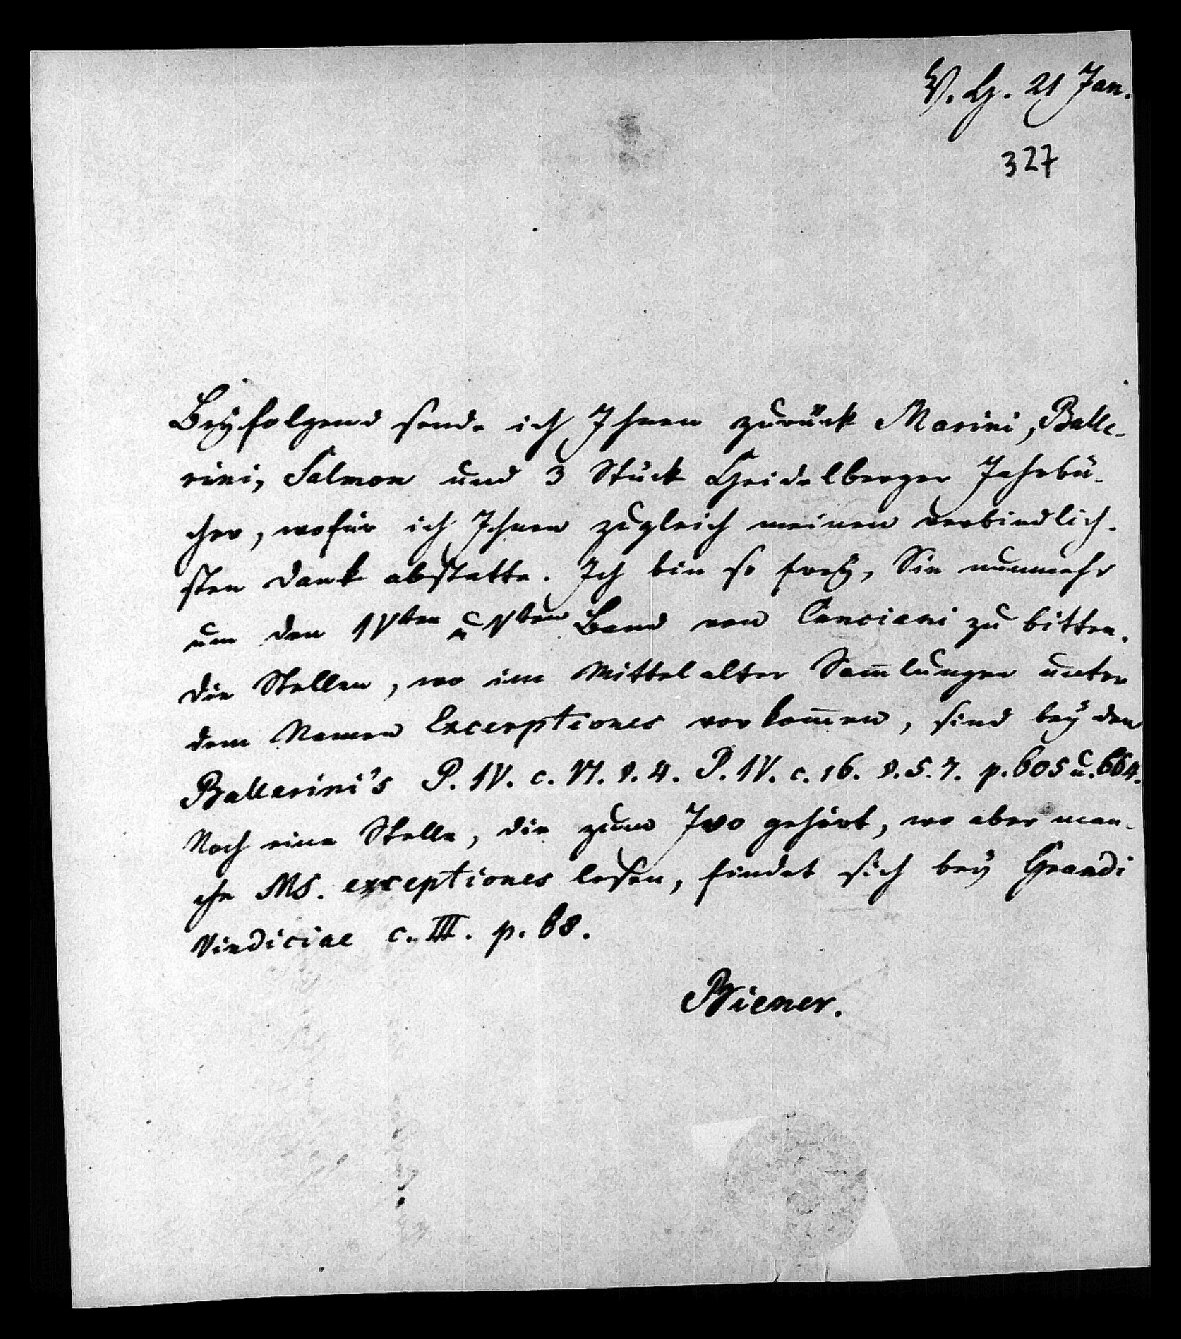 V. H. 21 Jan.
327
Beyfolgend sende ich Ihnen zurück Marini, Balle-
rini, Salmon und 3 Stück Heidelberger Jahrbü-
cher, wofür ich Ihnen zugleich meinen verbindlich-
sten Dank abstatte. Ich bin so frey, Sie nunmehr
um den IVten u Vten Band von Canciani zu bitten.
Die Stellen, wo im Mittelalter Sam̅lungen unter
dem Namen Excerptiones vorkom̅en, sind bey den
Ballerini's P. IV. c. VI. §. 4. P. IV. c. 16. §. 5. 7. p. 605 u. 664.
Noch eine Stelle, die zum Ivo gehört, wo aber man-
che MS. exceptiones lesen, findet sich bey Grandi
Vindiciae c. III. p. 68.
Biener.